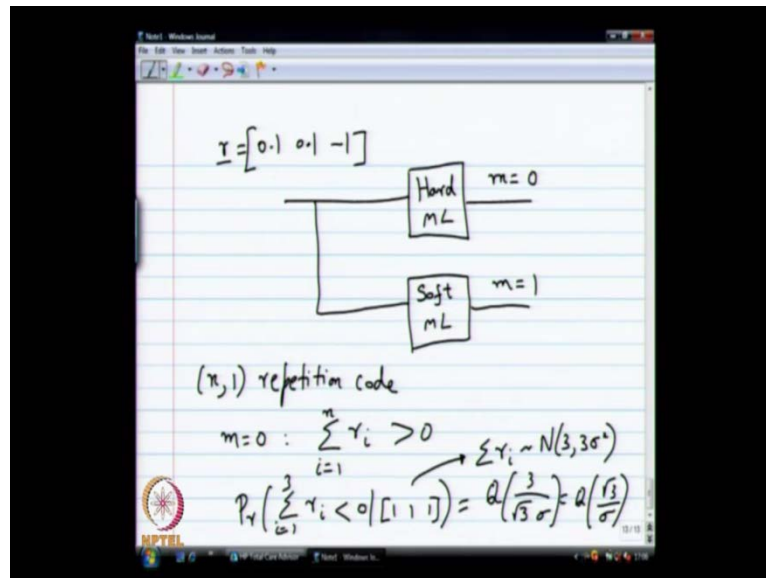 Note1 - Windows Journal
File Edit View Insert Actions Tools Help
r = [0.1 0.1 -1]
Hard ML
m = 0
Soft ML
m = 1
(n,1) repetition code
m=0 : \sum_{i=1}^{n} r_i > 0
Σ r_i ~ N(3, 3σ²)
Pr( \sum_{i=1}^{3} r_i < 0 | [1 1 1] ) = Q( 3 / (√3 σ) ) = Q( √3 / σ )
13/13
NPTEL
HP Total Care Advisor
Note1 - Windows Jo...
17:06